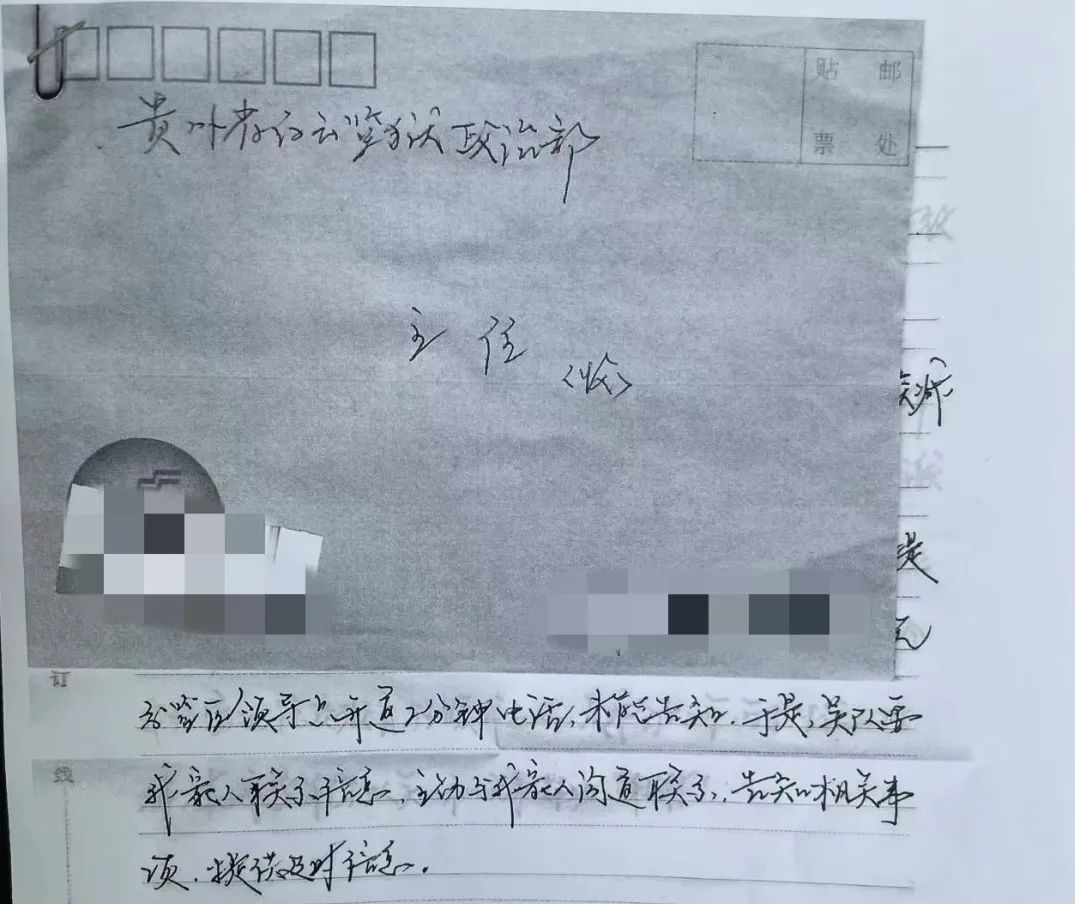 贴 邮
票 处
贵州省白云监狱政治部
主 任
(收)
订
监区领导点开通2分钟电话,未能告知,于是,吴队要
线
我家人联系信息,主动与我家人沟通联系,告知相关事
项,提供及时信息。